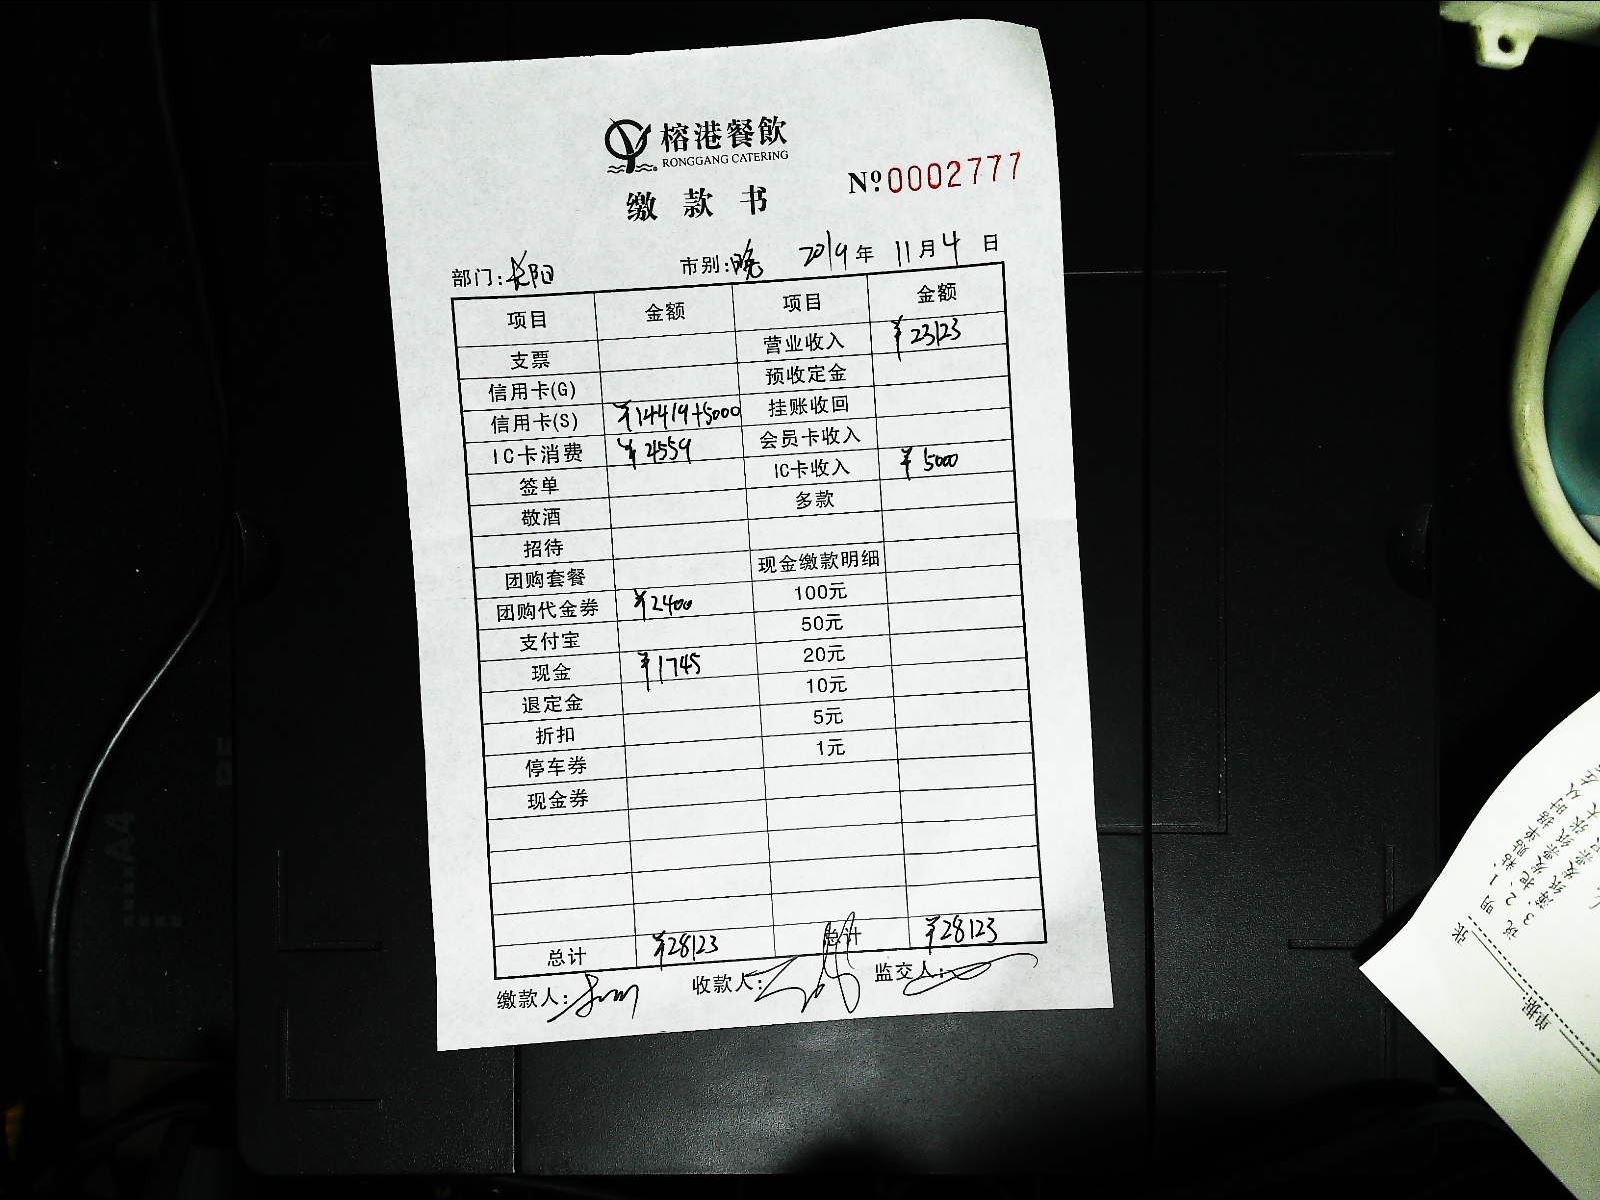 榕港餐飲
RONGGANG CATERING
缴款书
Nº0002777
部门:长阳 市别:晚 2019年11月4日
项目 金额 项目 金额
支票 营业收入 ¥23123
信用卡(G) 预收定金
信用卡(S) ¥14419+5000 挂账收回
IC卡消费 ¥4559 会员卡收入
签单 IC卡收入 ¥5000
敬酒 多款
招待
团购套餐 现金缴款明细
团购代金券 ¥2400 100元
支付宝 50元
现金 ¥1745 20元
退定金 10元
折扣 5元
停车券 1元
现金券
总计 ¥28123 总计 ¥28123
缴款人: 收款人: 监交人: